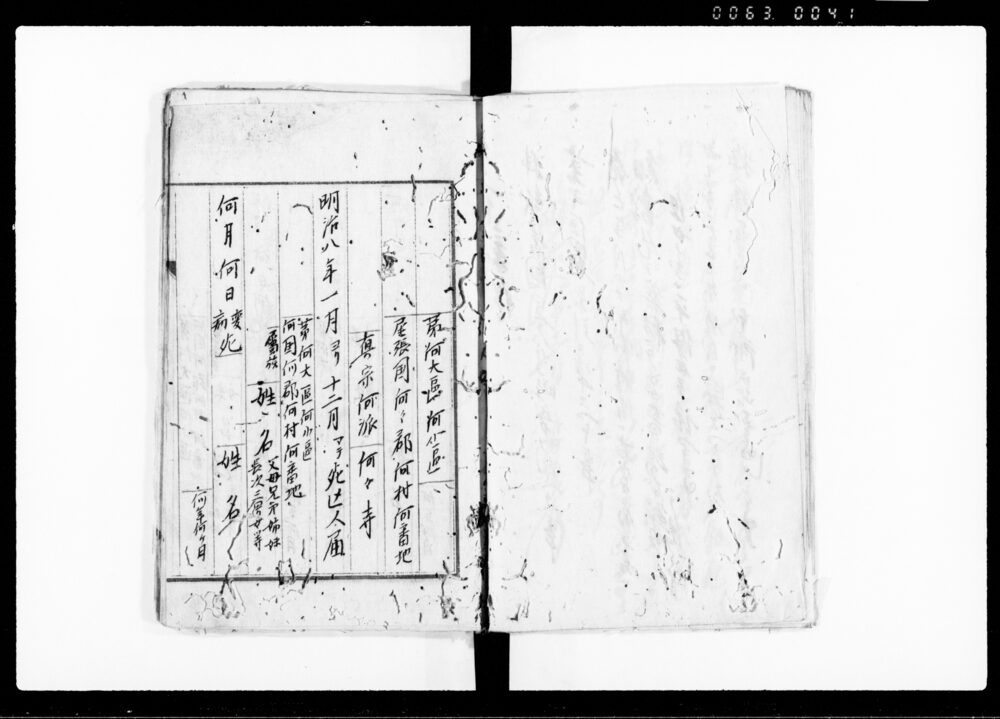 0063 0041
第何大區何小區
尾張國何々郡何村何番地
真宗何派何々寺
明治八年一月ヨリ十二月マデ死亡人届
第何大區何小區
何国何郡何村何番地
属族
姓名
父母兄弟姉妹
長次三男女等
何月何日
変
病死
姓名
何年何ヶ月